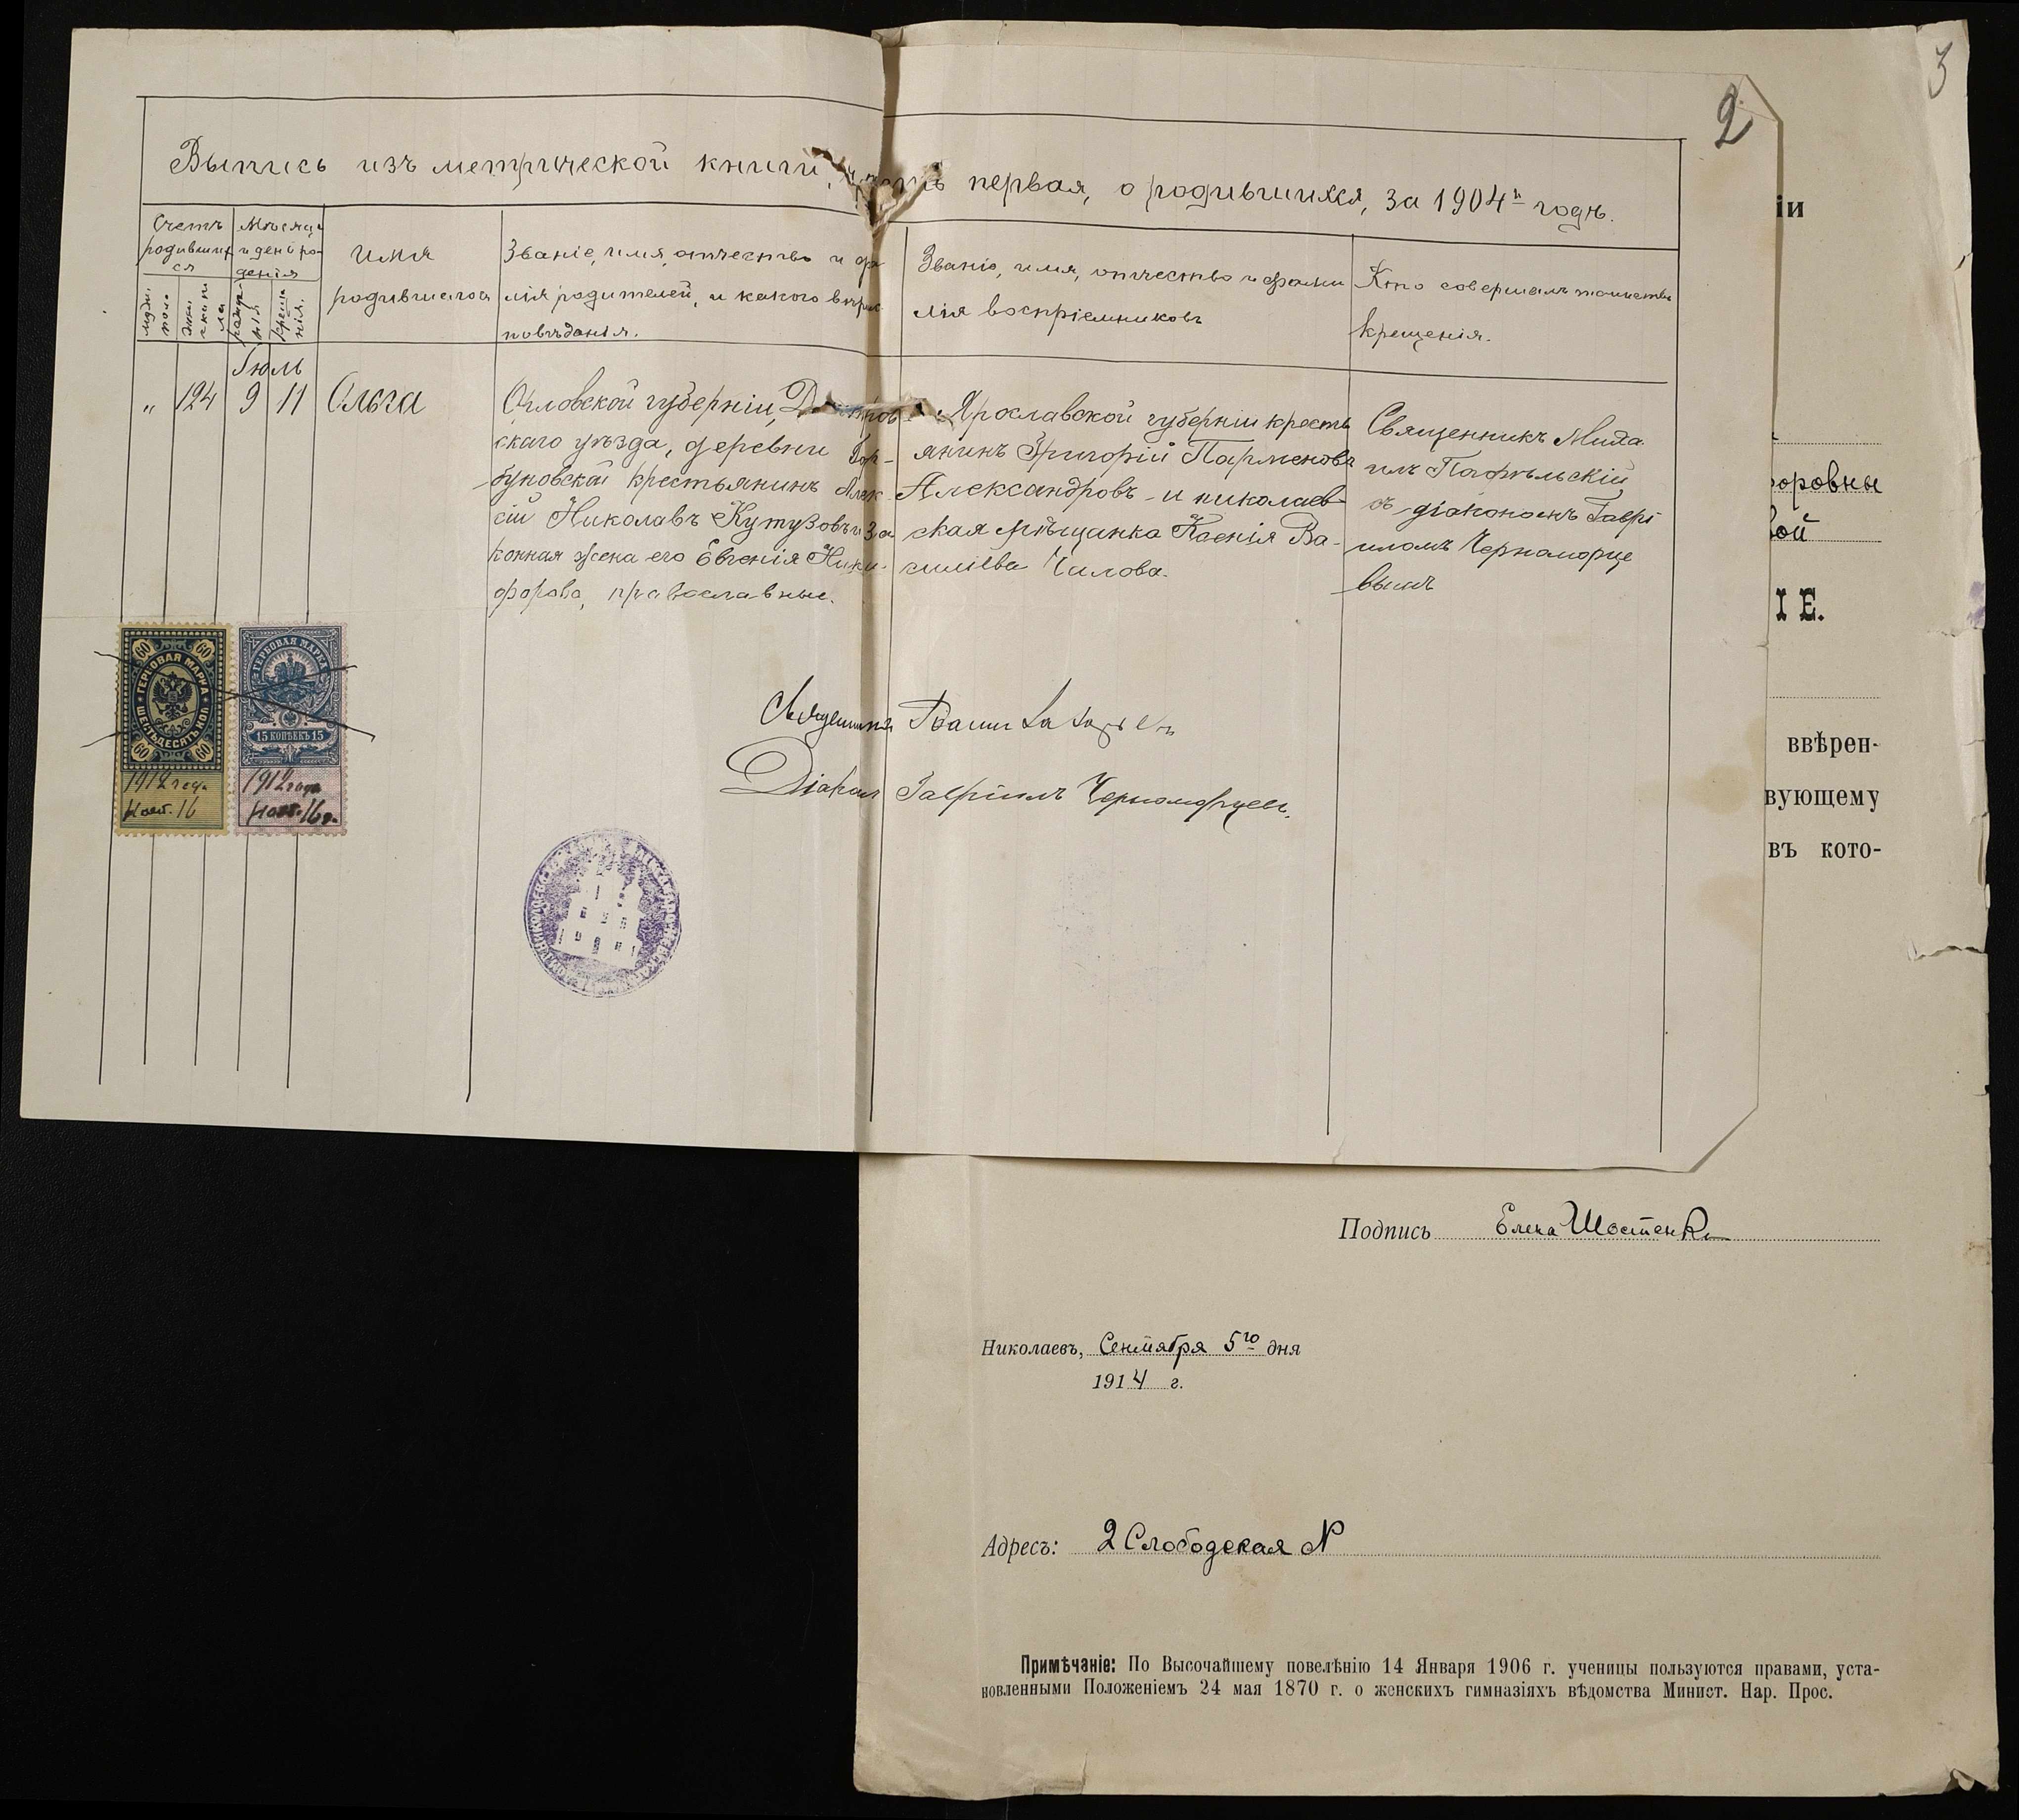 2
3
Выпись изъ метрической книги, часть первая, о родившихся, за 1904й годъ.
Счетъ родившихся
Мѣсяцъ и день рожденія
Имя
родившагося
Званіе, имя, отчество и фа
лія родителей, и какого вѣроис
повѣданія.
Званіе, имя, отчество и фами
лія воспріемниковъ
Кто совершалъ таинство
крещенія.
Іюль
" 124 9 11 Ольга
Орловской губерніи, Дмитров
скаго уѣзда, деревни Гор-
буновской крестьянинъ Алек
сій Николаевъ Кутузовъ и за
конная жена его Евгенія Ники
форова, православные.
Ярославской губерніи кресть
янинъ Григорій Парменовъ
Александровъ и николаев
ская мѣщанка Ксенія Ва-
силіева Чилова.
Священникъ Миха
илъ
съ діакономъ Гаврі
иломъ Черноморце
вымъ
ГЕРБОВАЯ МАРКА
ШЕСТЬДЕСЯТЪ КОП
60 60
60 60
1912 год.
Нояб. 16
ГЕРБОВАЯ МАРКА
15 КОПѢЕКЪ 15
1912 года
Нояб. 16 д.
Священникъ
Діаконъ Гавріилъ Черноморцевъ.
іи
оровны
вой
ІЕ.
ввѣрен-
вующему
въ кото-
Подпись Елена Шостенко
Николаевъ, Сентября 5го дня
1914 г.
Адресъ: 2 Слободская №
Примѣчаніе: По Высочайшему повелѣнію 14 Января 1906 г. ученицы пользуются правами, уста-
новленными Положеніемъ 24 мая 1870 г. о женскихъ гимназіяхъ вѣдомства Минист. Нар. Прос.